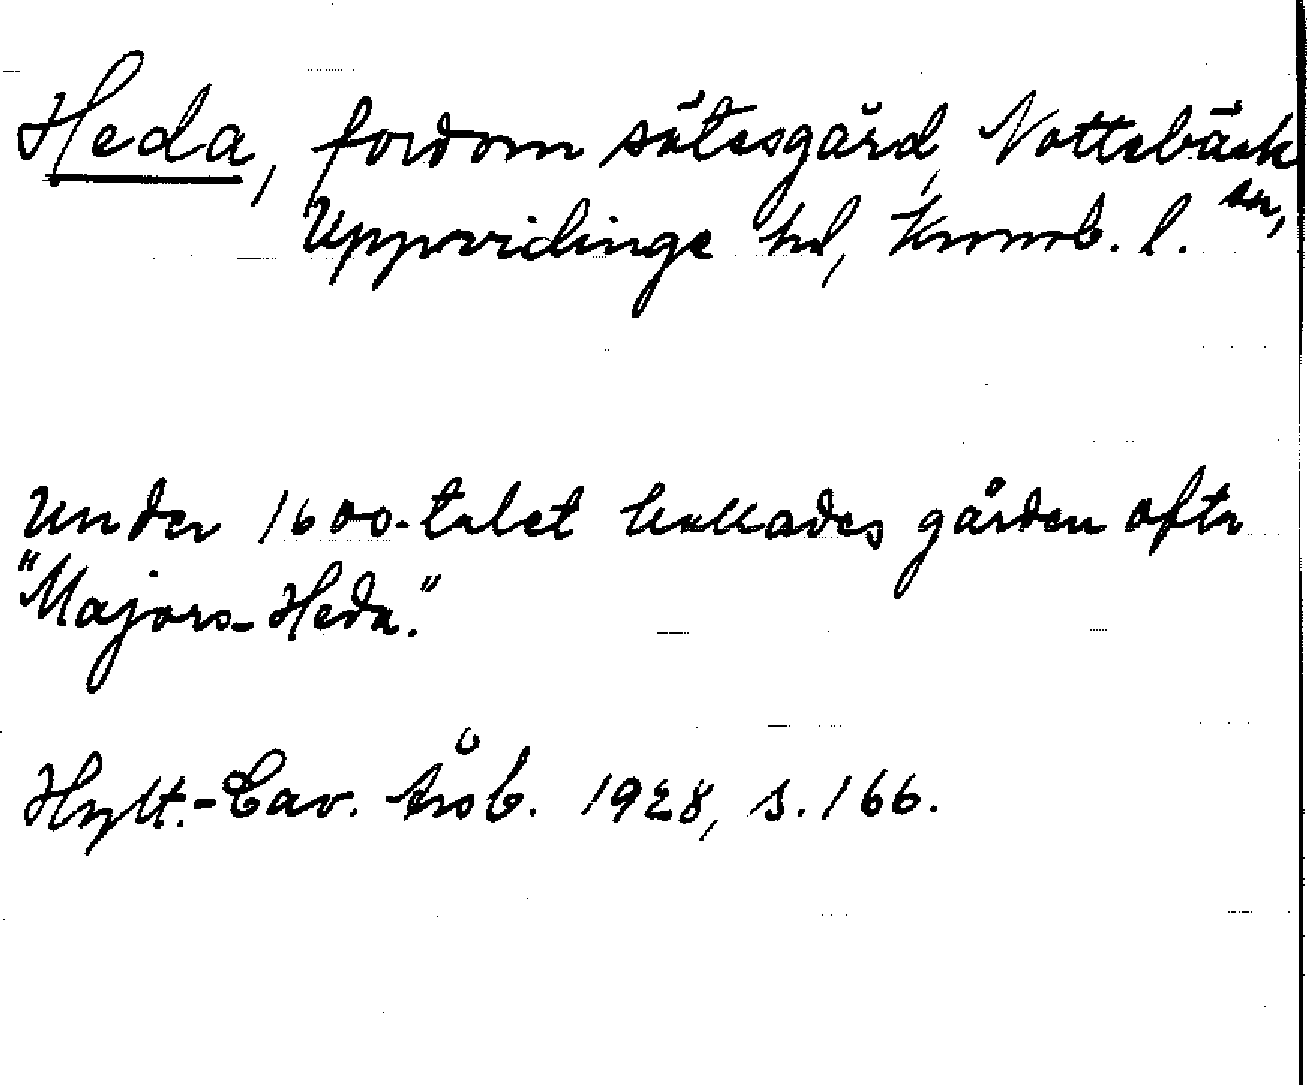 Heda, fordom sätesgård, Nottebäck
sn,
Uppvidinge hd, Kronob. l.
Under 1600-talet kallades gården ofta
"Majors-Heda."
Hylt.-Cav. årsb. 1928, s. 166.